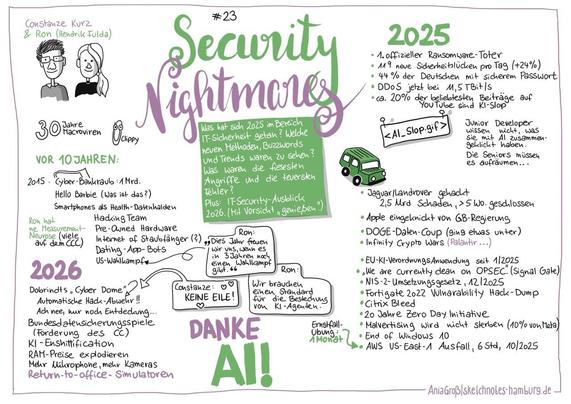 #23
Security
Nightmares
Constanze Kurz
& Ron (Hendrik Fulda)
30 Jahre
Macroviren
Clippy
VOR 10 JAHREN:
2015 - Cyber-Bankraub: 1 Mrd.
Hello Barbie (Was ist das?)
Smartphones als Health-Datenhalden
Hacking Team
Pre-Owned Hardware
Internet of Staubfänger (?)
Dating-App-Bots
US-Wahlkampf
Ron hat
ne Measurement-
Neurose (viele
auf dem CCC)
Was hat sich 2025 im Bereich
IT-Sicherheit getan? Welche
neuen Methoden, Buzzwords
und Trends waren zu sehen?
Was waren die fiesesten
Angriffe und die teuersten
Fehler?
Plus: IT-Security-Ausblick
2026. (Mit Vorsicht „genießen")
Ron:
„Dies Jahr freuen
wir uns, wenn es
in 3 Jahren noch
einen Wahlkampf
gibt."
Constanze:
KEINE EILE!
Ron:
Wir brauchen
einen Standard
für die Bestechung
von KI-Agenten.
2026
Dobrindts „Cyber Dome"
Automatische Hack-Abwehr!!
Ach nee, nur noch Entdeckung...
Bundesdatensicherungsspiele
(Forderung des CC)
KI-Enshittification
RAM-Preise explodieren
Mehr Mikrophone, mehr Kameras
Return-to-office-Simulatoren
DANKE
AI!
2025
1. offizieller Ransomware-Toter
119 neue Sicherheitslücken pro Tag (+24%)
44% der Deutschen mit sicherem Passwort
DDoS jetzt bei 11,5 TBit/s
ca. 20% der beliebtesten Beiträge auf
YouTube sind KI-Slop
<AI_Slop.gif>
Junior Developer
wissen nicht, was
sie mit AI zusammen-
geklickt haben.
Die Seniors müssen
es aufräumen...
Jaguar/Landrover gehackt
2,5 Mrd. Schaden, >5 Wo. geschlossen
Apple eingeknickt von GB-Regierung
DOGE-Daten-Coup (ging etwas unter)
Infinity Crypto Wars (Palantir...)
EU-KI-Verordnungs-Anwendung seit 1/2025
„We are currently clean on OPSEC" (Signal Gate)
NIS-2-Umsetzungsgesetz, 12/2025
Fortigate 2022 Vulnarability Hack-Dump
Citrix Bleed
20 Jahre Zero Day Initiative
Malvertising wird nicht sterben (10% von Meta)
End of Windows 10
AWS US-East-1 Ausfall, 6 Std, 10/2025
Ernstfall-
Übung:
1 Monat
AniaGroß|sketchnotes-hamburg.de